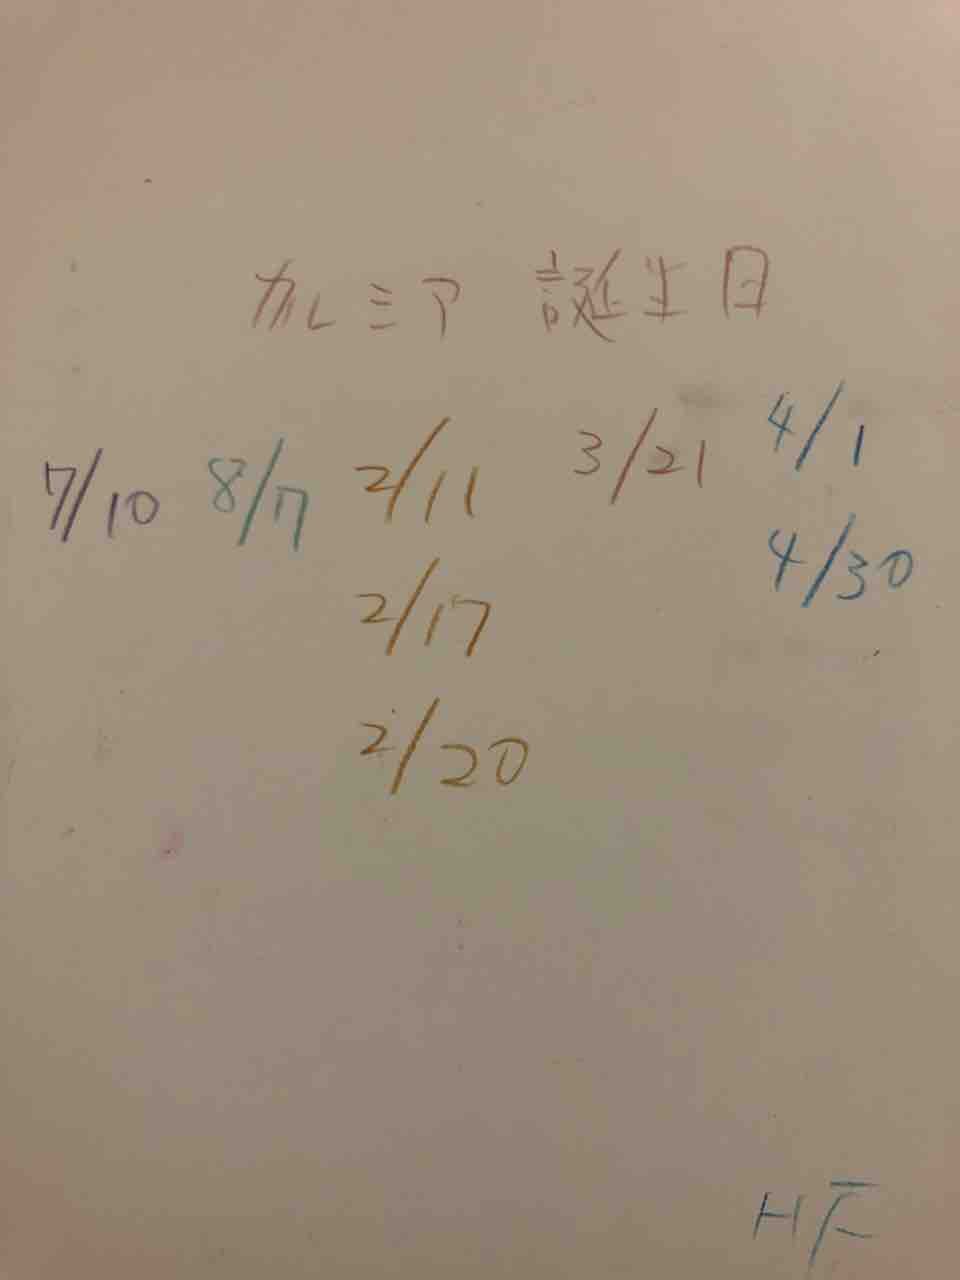 カルミア 誕生日
7/10 8/17 2/11 3/21 4/1
2/17 4/30
2/20